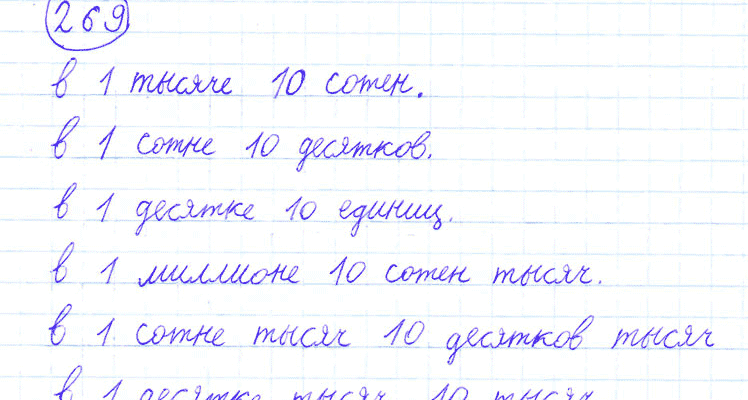 269
в 1 тысяче 10 сотен.
в 1 сотне 10 десятков.
в 1 десятке 10 единиц.
в 1 миллионе 10 сотен тысяч.
в 1 сотне тысяч 10 десятков тысяч
в 1 десятке тысяч 10 тысяч